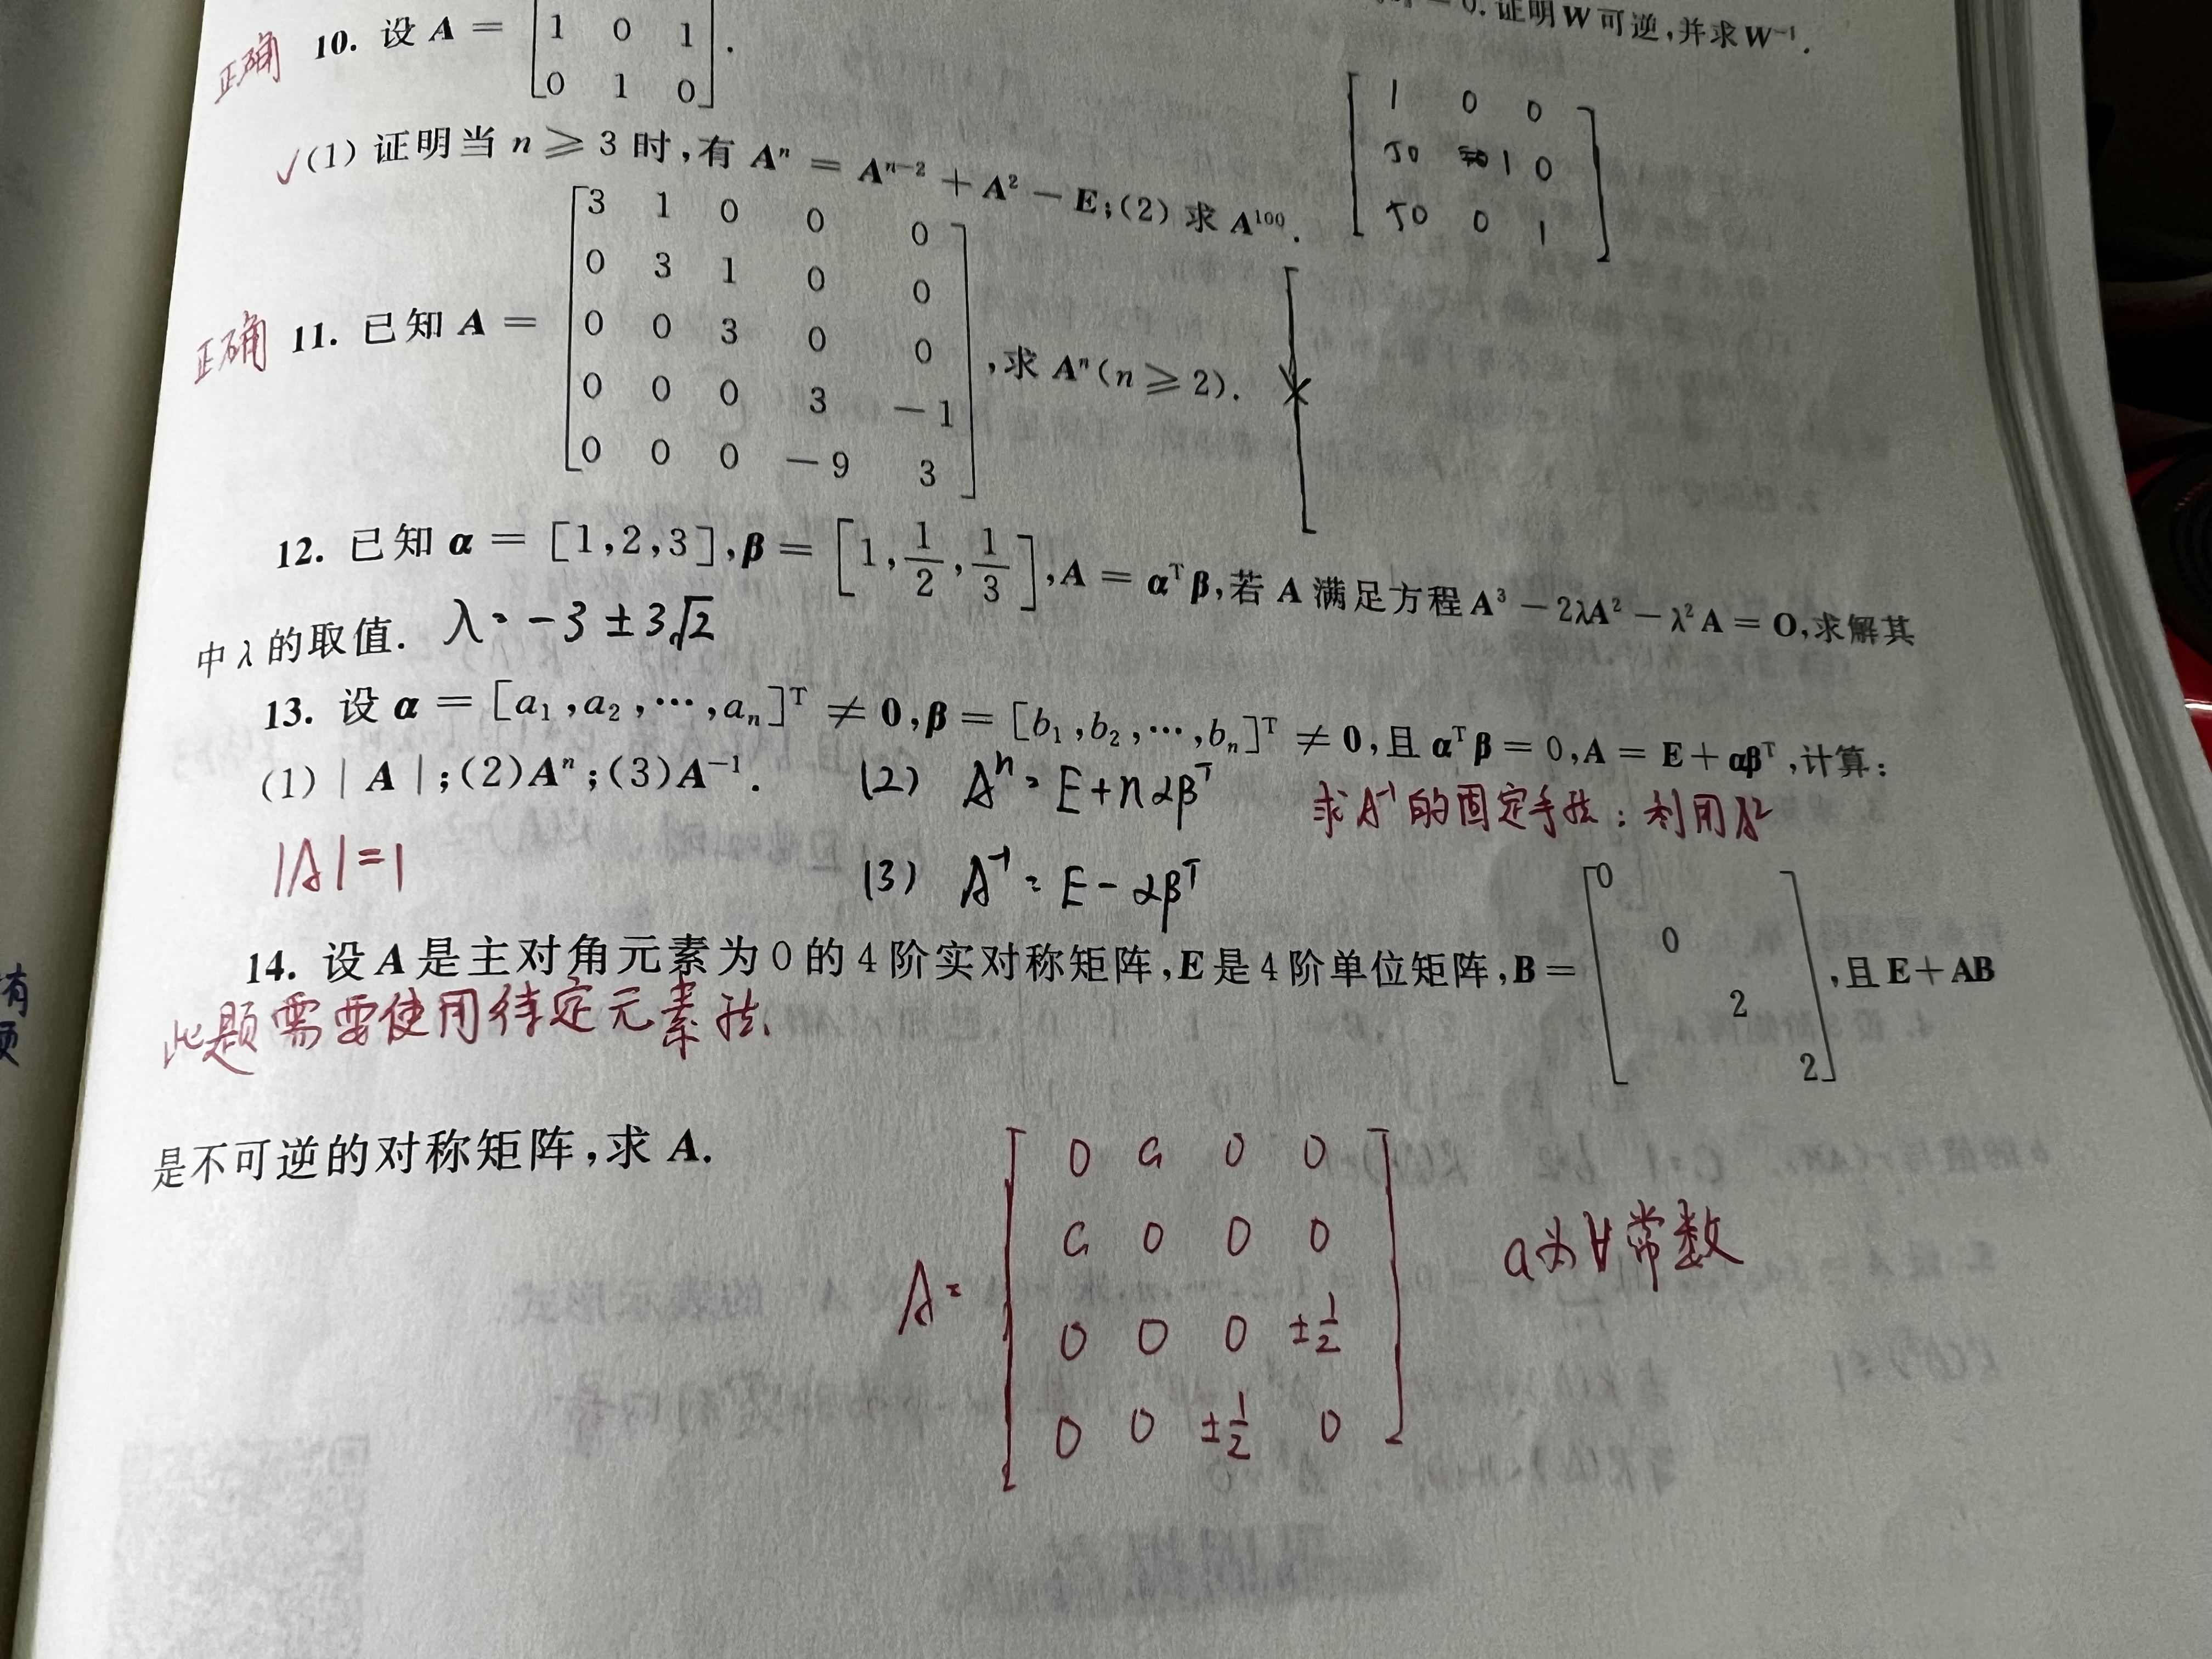 0. 证明 W 可逆,并求 W⁻¹.
正确 10. 设 A = [1 0 1
0 1 0].
✓(1) 证明当 n ⩾ 3 时,有 Aⁿ = Aⁿ⁻² + A² − E;(2) 求 A¹⁰⁰.
[1 0 0
50 1 0
50 0 1]
正确 11. 已知 A = [3 1 0 0 0
0 3 1 0 0
0 0 3 0 0
0 0 0 3 −1
0 0 0 −9 3] ,求 Aⁿ(n ⩾ 2).
12. 已知 α = [1,2,3],β = [1,1/2,1/3],A = αᵀβ,若 A 满足方程 A³ − 2λA² − λ²A = O,求解其
中 λ 的取值. λ = −3 ± 3√2
13. 设 α = [a₁,a₂,⋯,aₙ]ᵀ ≠ 0,β = [b₁,b₂,⋯,bₙ]ᵀ ≠ 0,且 αᵀβ = 0,A = E + αβᵀ,计算:
(1) | A |;(2)Aⁿ;(3)A⁻¹.
(2) Aⁿ = E + nαβᵀ
求A⁻¹的固定手法:利用A²
|A| = 1
(3) A⁻¹ = E − αβᵀ
14. 设 A 是主对角元素为 0 的 4 阶实对称矩阵,E 是 4 阶单位矩阵,B = [0
0
2
2] ,且 E + AB
此题需要使用待定元素法.
是不可逆的对称矩阵,求 A.
A = [0 a 0 0
a 0 0 0
0 0 0 ±1/2
0 0 ±1/2 0]
a为∀常数
有